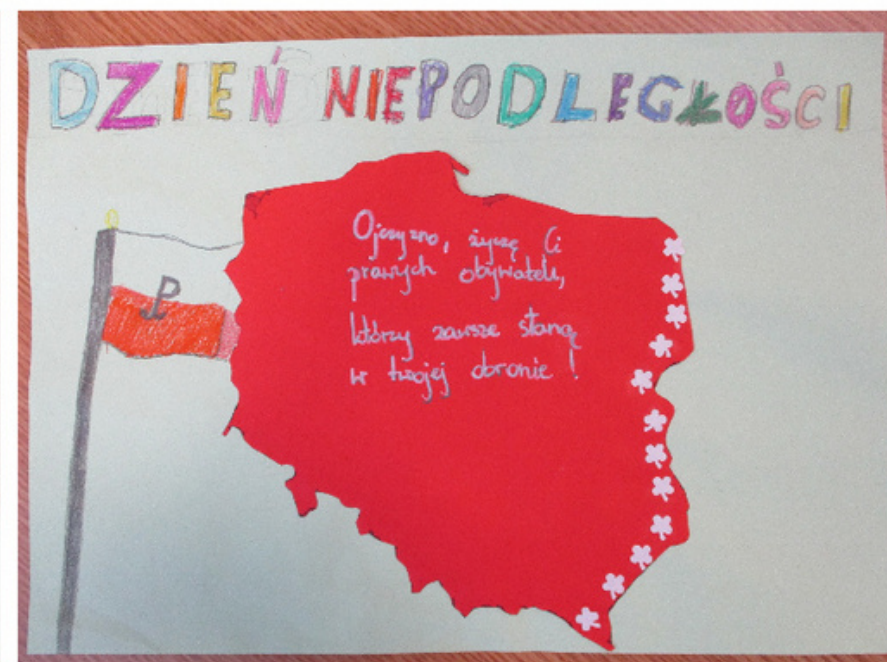 DZIEŃ NIEPODLEGŁOŚCI
Ojczyzno, życzę Ci
prawych obywateli,
którzy zawsze staną
w twojej obronie!
P